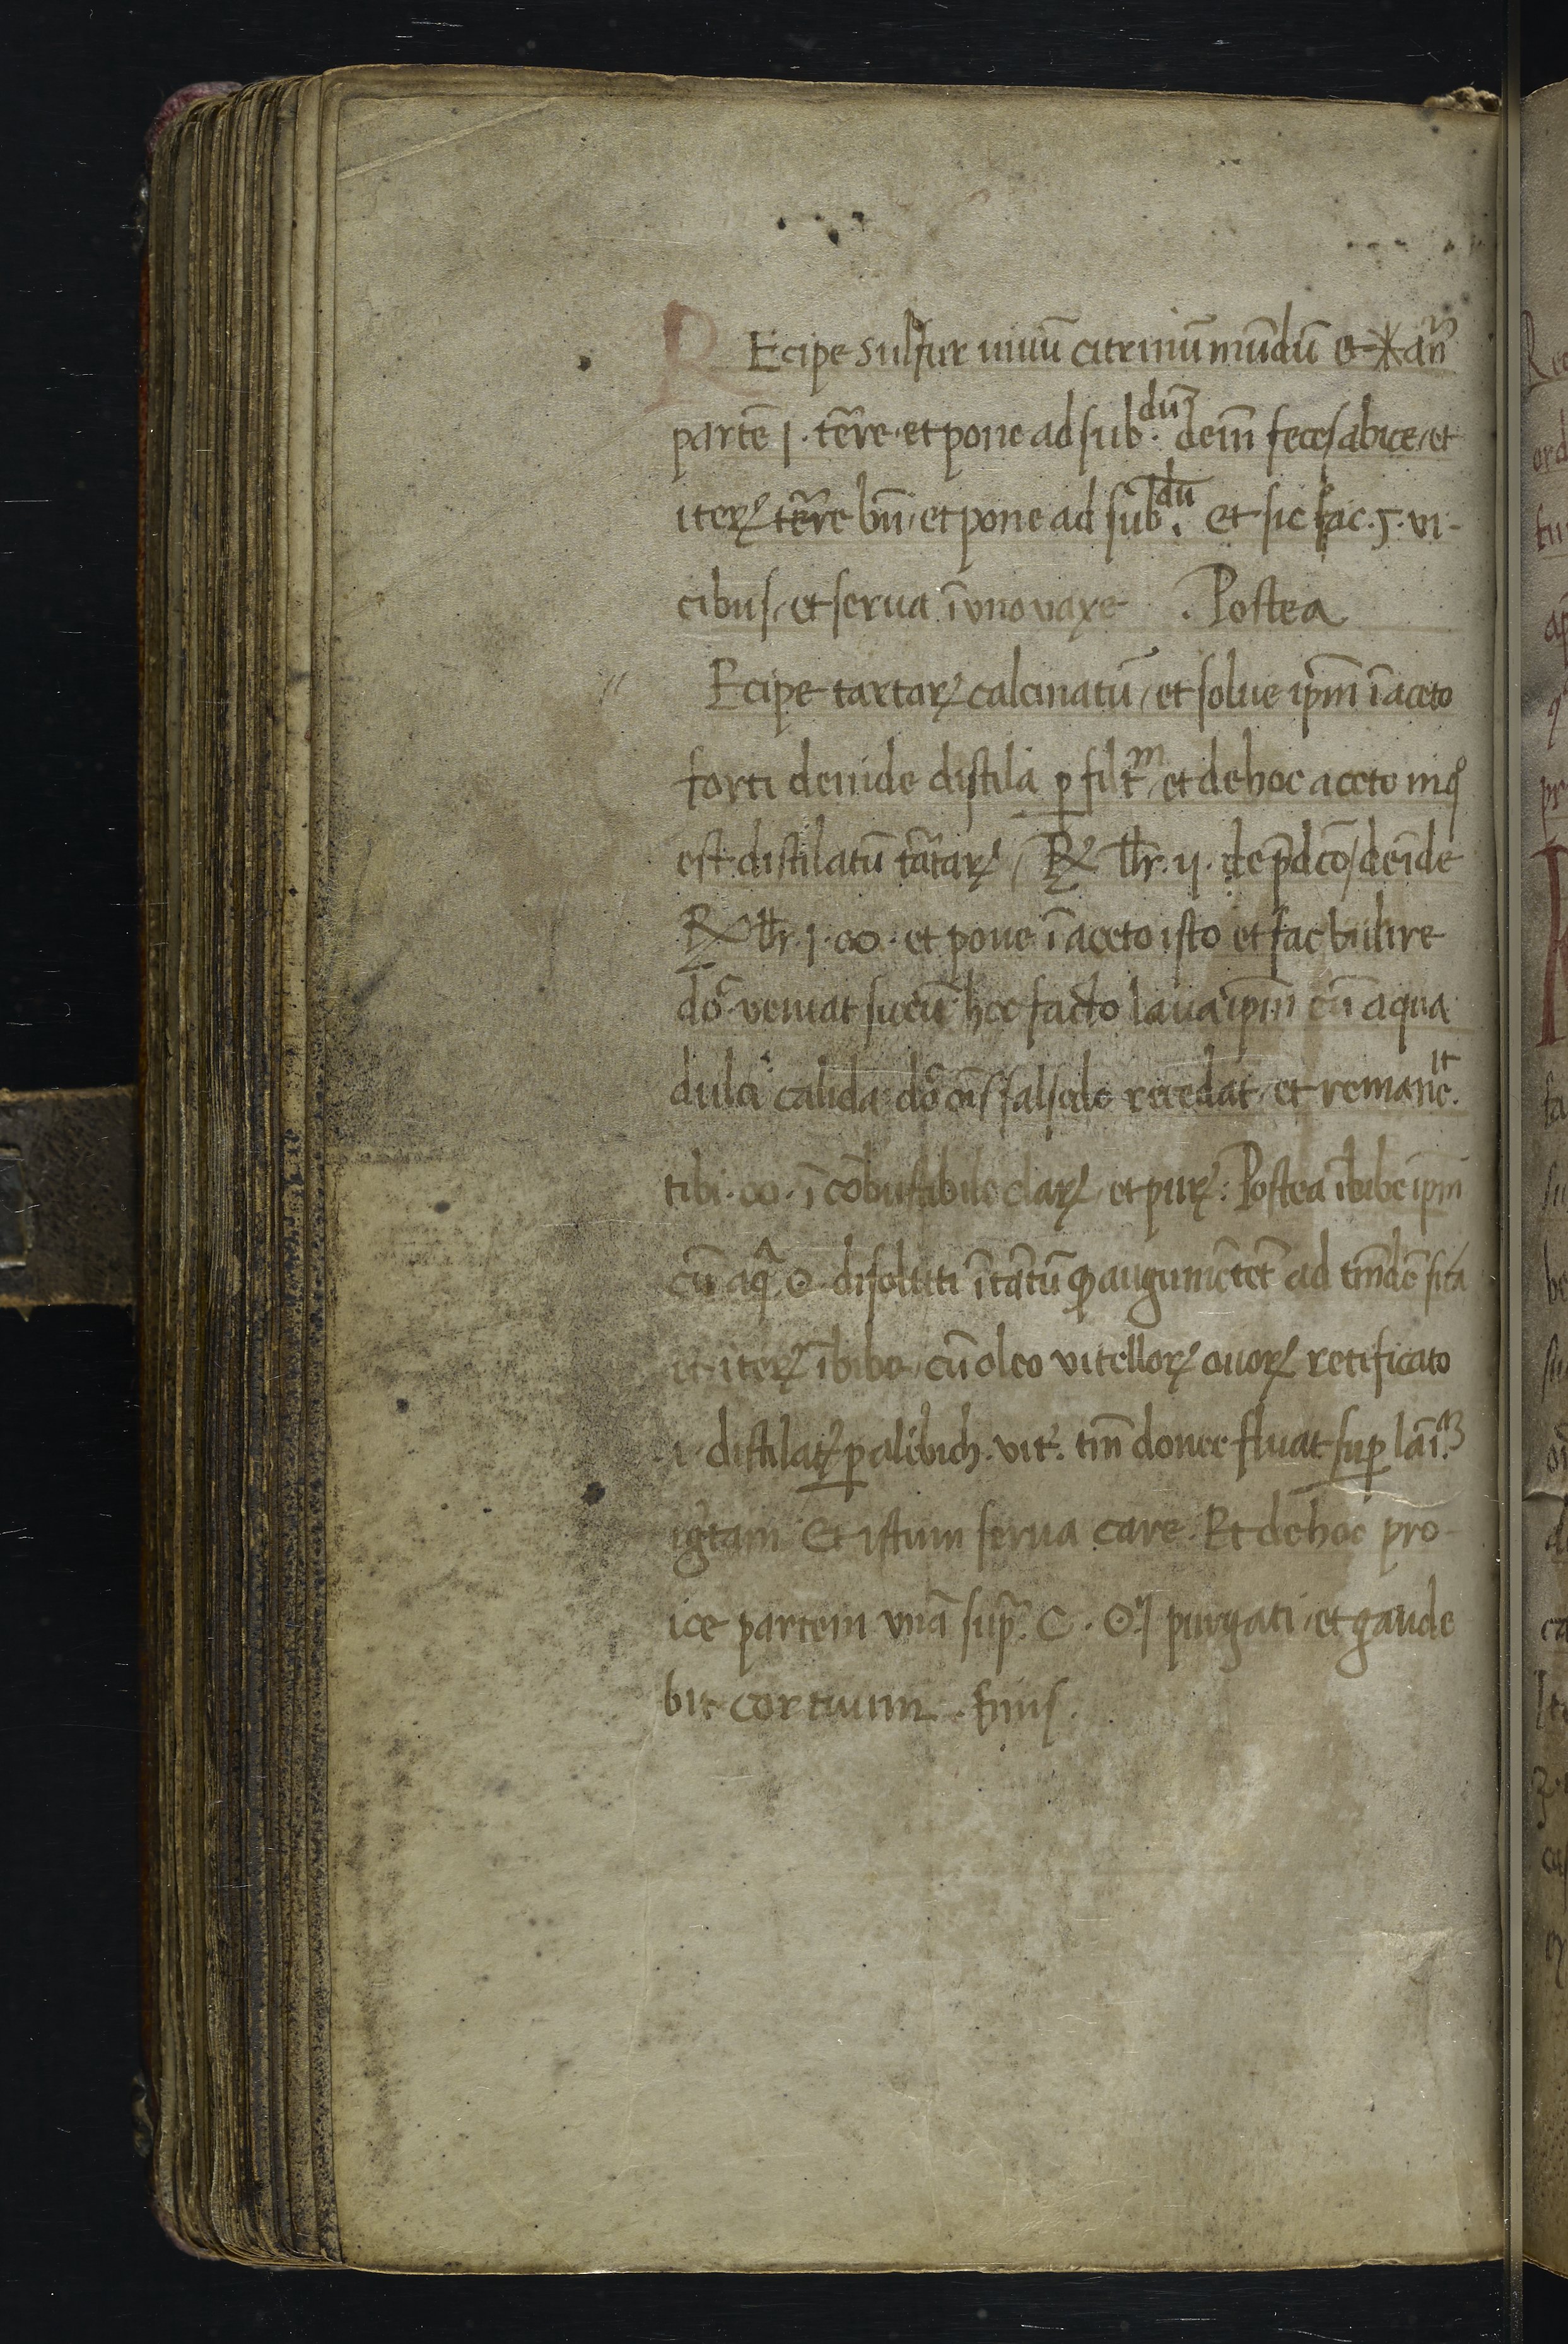 REcipe sulfur uiuū citrinū mūdū et * an̄
partē j. tēre. et pone ad sub.dū dein̄ feces abice, et
iteꝝ tēre bn̄, et pone ad sub.dū et sic fac. 5. ui-
cibus, et serua ī uno uaxe. Postea
Ecipe tartaꝝ calcinatū, et solue ip̄m ī aceto
forti deinde distila ꝑ filt̄m, et de hoc aceto in q°
est distilatū tātaꝝ, ℞ lbr. ij. de p̄dc̄o, deīde
℞ lbr. j. ꝏ. et pone ī aceto isto et fac bulire
do^c ueniat sucū hoc facto laua ip̄m cū aqua
dulci calida do^c oīs salsedo recedat, et remane.^it
tibi. ꝏ. ī cōbustibile claꝝ et puꝝ. Postea ībibe ip̄m
cū aq̄ ☉ disoluti ī tātū ꝙ augumētet̄ ad
iteꝝ ībibe, cū oleo uitelloꝝ ouoꝝ retificato
i. distilat ꝑ alēbich. uit. tm̄ donec fluat suꝑ lāi.
iḡtam Et istum serua care. Et de hoc pro-
ice partem unā sup̄. C. purgati, et gaude
bit cor tuum. finis.